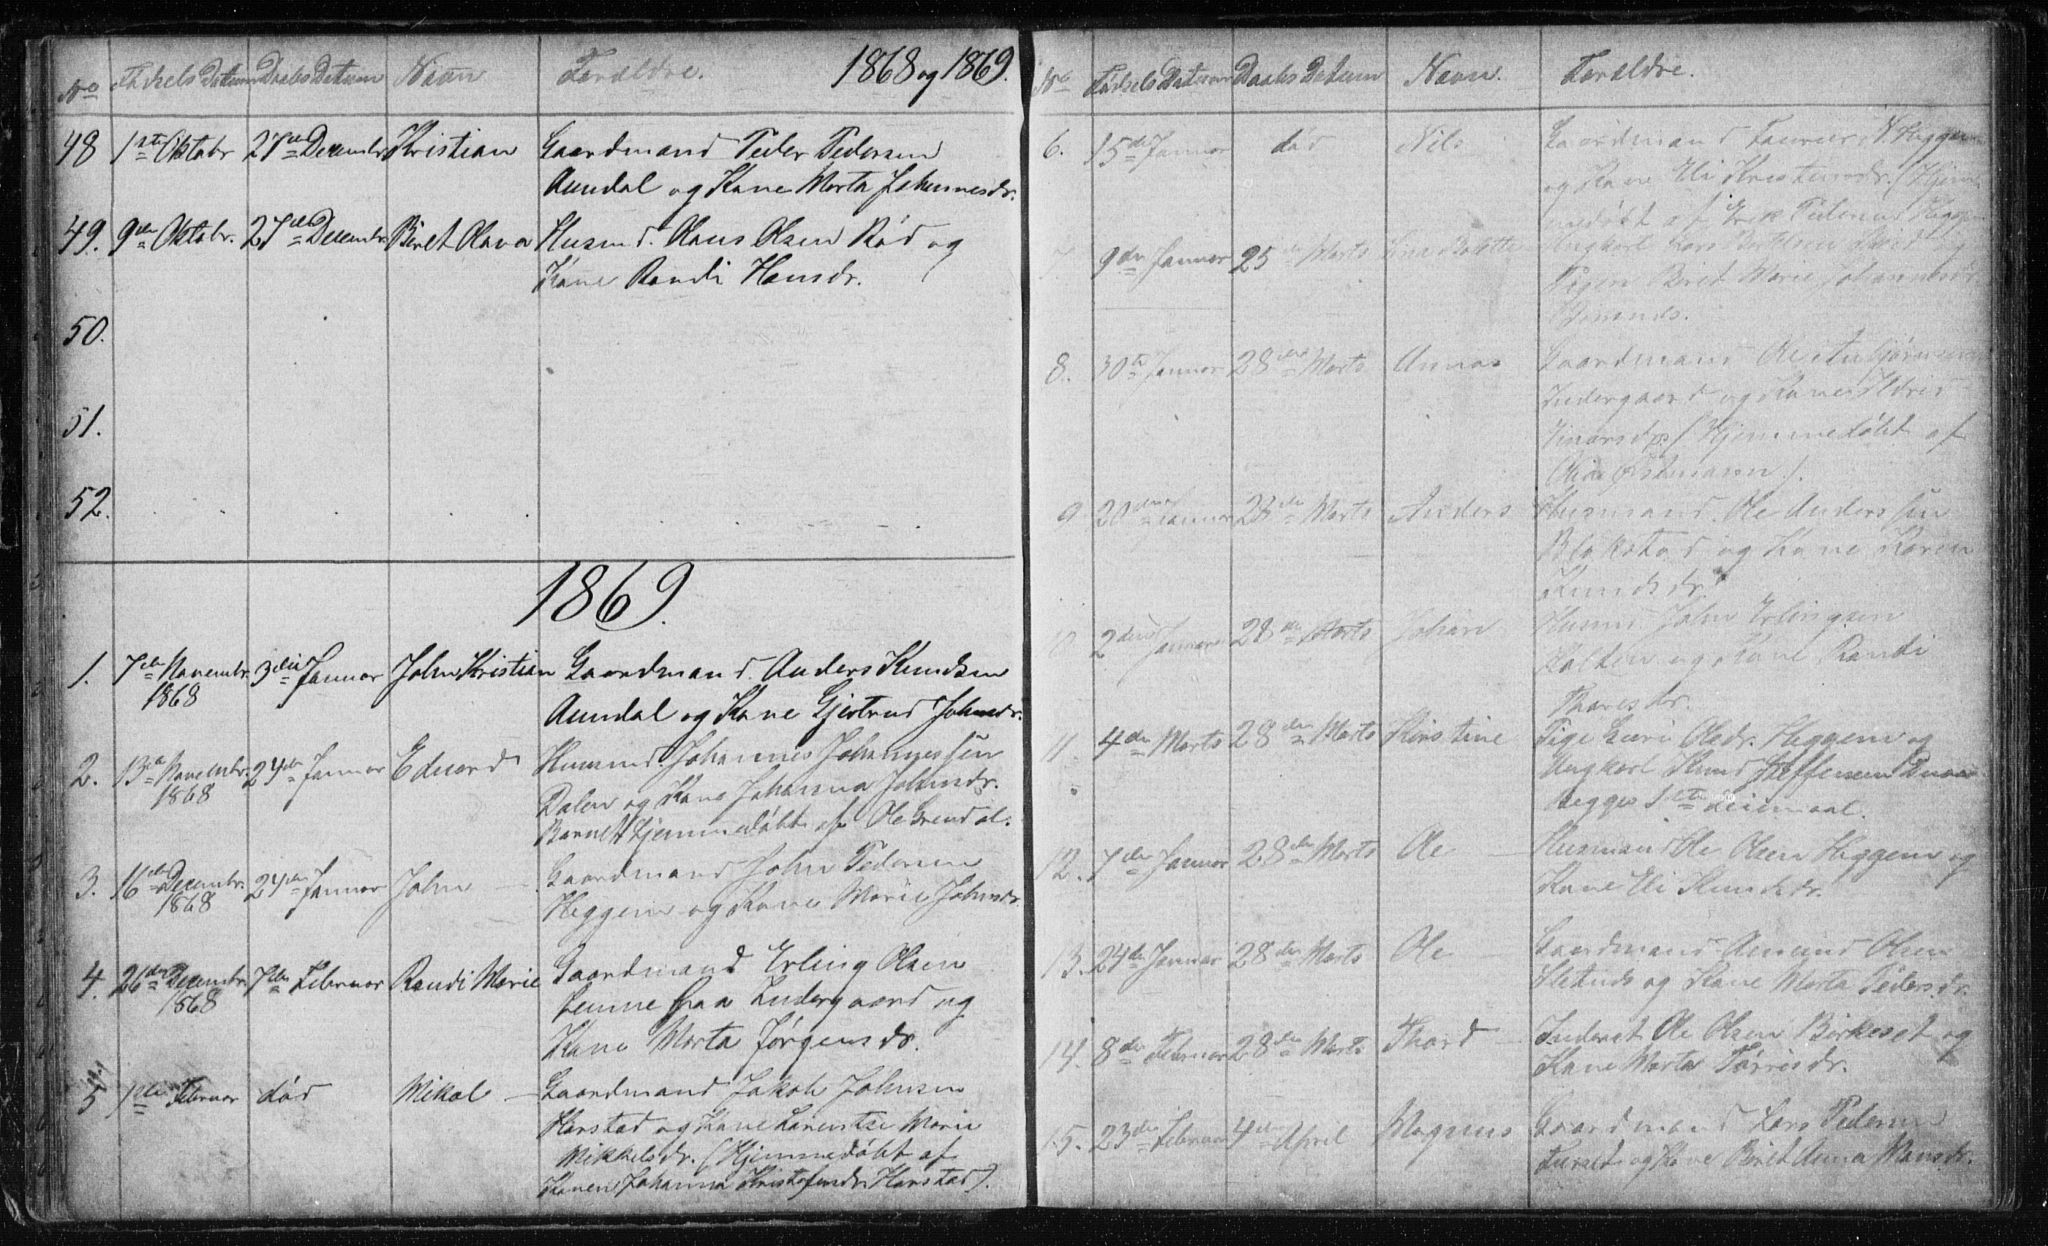 1868 og 1869.
No Fødsels Datum Daabs Datum Navn Forældre.
48 1ste Oktobr 27de Decembr Kristian Gaardmand Peder Pedersen
Aundal og Kone Marta Johannesdr.
49. 9de Oktobr. 27de Decembr. Beret Olava Husmd. Olaus Olsen Rød og
Kone Randi Hansdr.
50.
51.
52.
1869.
1. 7de Novembr. 3die Januar John Kristian Gaardmand Anders Knudsen
1868 Aundal og Kone Gjertrud Johnsdr.
2. 13de Novembr. 24de Januar Edvard Husmd. Johannes Johannessen
1868 Dalen og Kone Johanna Johnsdr.
Barnet Hjemmedøbt af Ole Grendal.
3. 16de Decembr. 24de Januar John Gaardmand John Pedersen
1868 Heggem og Kone Marie Johnsdr.
4. 26de Decembr. 7de Februar Randi Marie Gaardmand Erling Olsen
1868 fra Indergaard og
Kone Marta Jørgensdr.
5 1ste Februar død Mikal Gaardmand Jakob Johnsen
Harstad og Kone Marie
Mikkelsdr. (Hjemmedøbt af
Konen Johanna Kristofersdr Harstad).
No Fødsels Datum Daabs Datum Navn. Forældre.
6. 15de Januar død Nils Gaardmand N. Heggem
og Kone Eli Kristensdr. (Hjem-
medøbt af Erik Pedersen Heggem
7 9de Januar 25de Marts Ungkarl Lars og
Pigen Beret Marie Johannesdr.
8. 30te Januar 28de Marts Gaardmand Ole
Indergaard og Kone
(Hjemmedøbt af
9 20de Januar 28de Marts Anders Husmand Ole Anderssen
Blakstad og Kone Karen
Knudsdr.
10 2den Januar 28de Marts Johan Husmd John Erlingsen
Kalden og Kone Randi
Tharesdr.
11. 4de Marts 28de Marts Kirstine Pige Guri Olsdr. Heggem og
Ungkarl Knud Steffensen
Begges 1ste Leiermaal.
12. 7de Januar 28de Marts Ole Husmand Ole Olsen Heggem og
Kone Eli Knudsdr.
13. 24de Januar 28de Marts Ole Gaardmand Amund Olsen
og Kone Marta Pedersdr.
14. 8de Februar 28de Marts Thord Inderst Ole Olsen Birkeset og
Kone Marta Tørrisdr.
15. 23de Februar 4de April Magnus Gaardmand Lars Pedersen
Furset og Kone Beret Anna Hansdr.